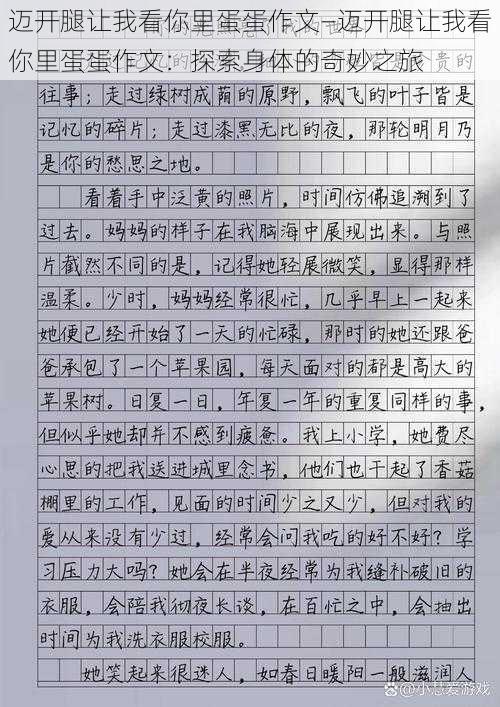 迈开腿让我看你里蛋蛋作文—迈开腿让我看
你里蛋蛋作文：探索身体的奇妙之旅
贵的
往事；走过绿树成荫的原野，飘飞的叶子皆是
记忆的碎片；走过漆黑无比的夜，那轮明月乃
是你的愁思之地。
看着手中泛黄的照片，时间仿佛追溯到了
过去。妈妈的样子在我脑海中展现出来。与照
片截然不同的是，记得她轻展微笑，显得那样
温柔。少时，妈妈经常很忙，几乎早上一起来
她便已经开始了一天的忙碌，那时的她还跟爸
爸承包了一个苹果园，每天面对的都是高大的
苹果树。日复一日，年复一年的重复同样的事，
但似乎她却并不感到疲惫。我上小学，她费尽
心思的把我送进城里念书，他们也干起了香菇
棚里的工作，见面的时间少之又少，但对我的
爱从来没有少过，经常会问我吃的好不好？学
习压力大吗？她会在半夜经常为我缝补破旧的
衣服，会陪我彻夜长谈，在百忙之中，会抽出
时间为我洗衣服校服。
她笑起来很迷人，如春日暖阳一般滋润人
@小慧爱游戏